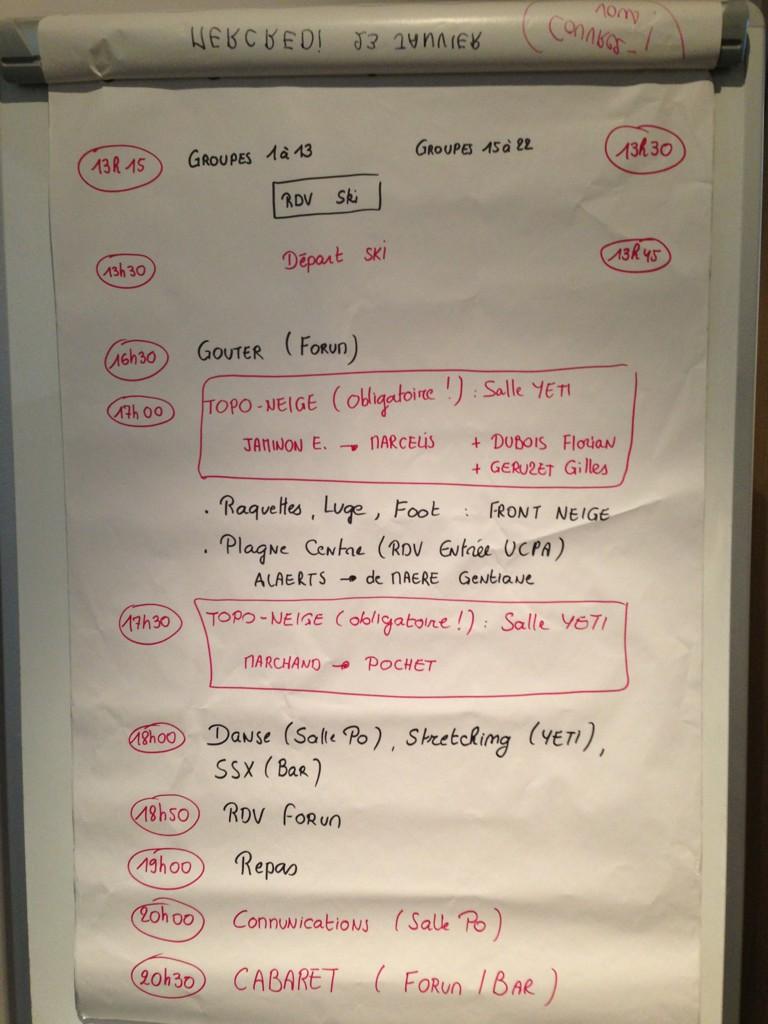 MERCREDI 23 JANVIER
13h15 GROUPES 1 à 13 GROUPES 15 à 22 13h30
RDV Ski
13h30 Départ SKI 13h45
16h30 GOUTER (FORUM)
17h00 TOPO-NEIGE (obligatoire !) : Salle YETI
JAMINON E. → MARCELIS + DUBOIS Florian
+ GERUZET Gilles
. Raquettes, Luge, Foot : FRONT NEIGE
. Plagne Centre (RDV Entrée UCPA)
ALAERTS → de MAERE Gentiane
17h30 TOPO-NEIGE (obligatoire !) : Salle YETI
MARCHAND → POCHET
18h00 Danse (Salle Po), Stretching (YETI),
SSX (BAR)
18h50 RDV FORUM
19h00 Repas
20h00 COMMUNICATIONS (Salle Po)
20h30 CABARET (FORUM / BAR)